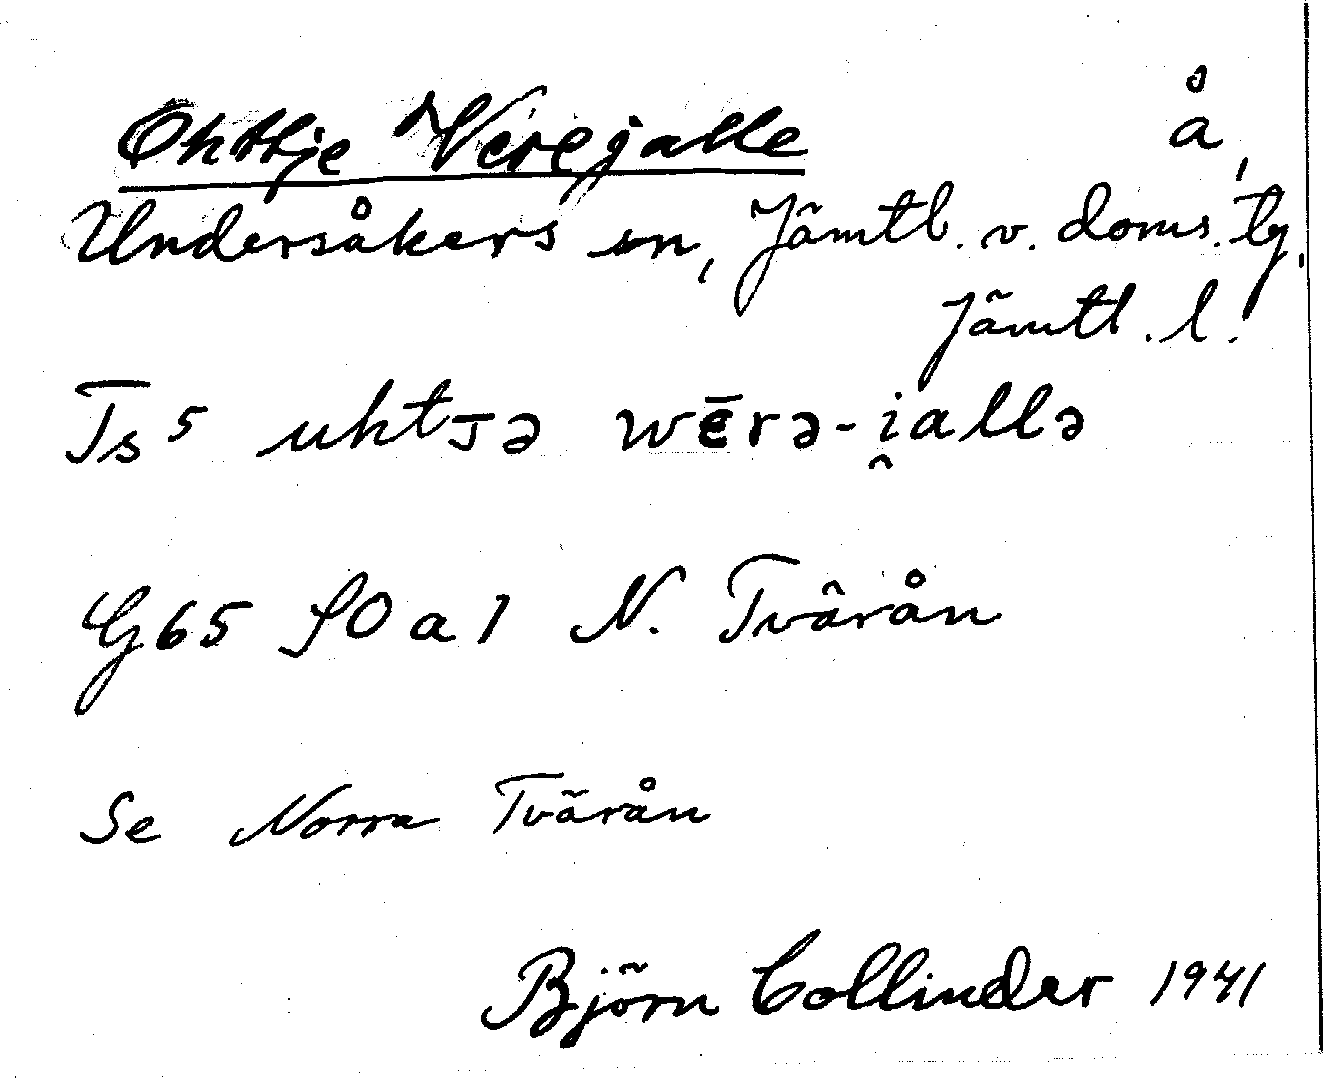 Ohttje Verejalle å,
Undersåkers sn, Jämtl. v. doms. tg.
Jämtl. l.
Ts⁵ uhtᴊə wērə-i̯allə
G65 f0a1 N. Tvärån
Se Norra Tvärån
Björn Collinder 1941